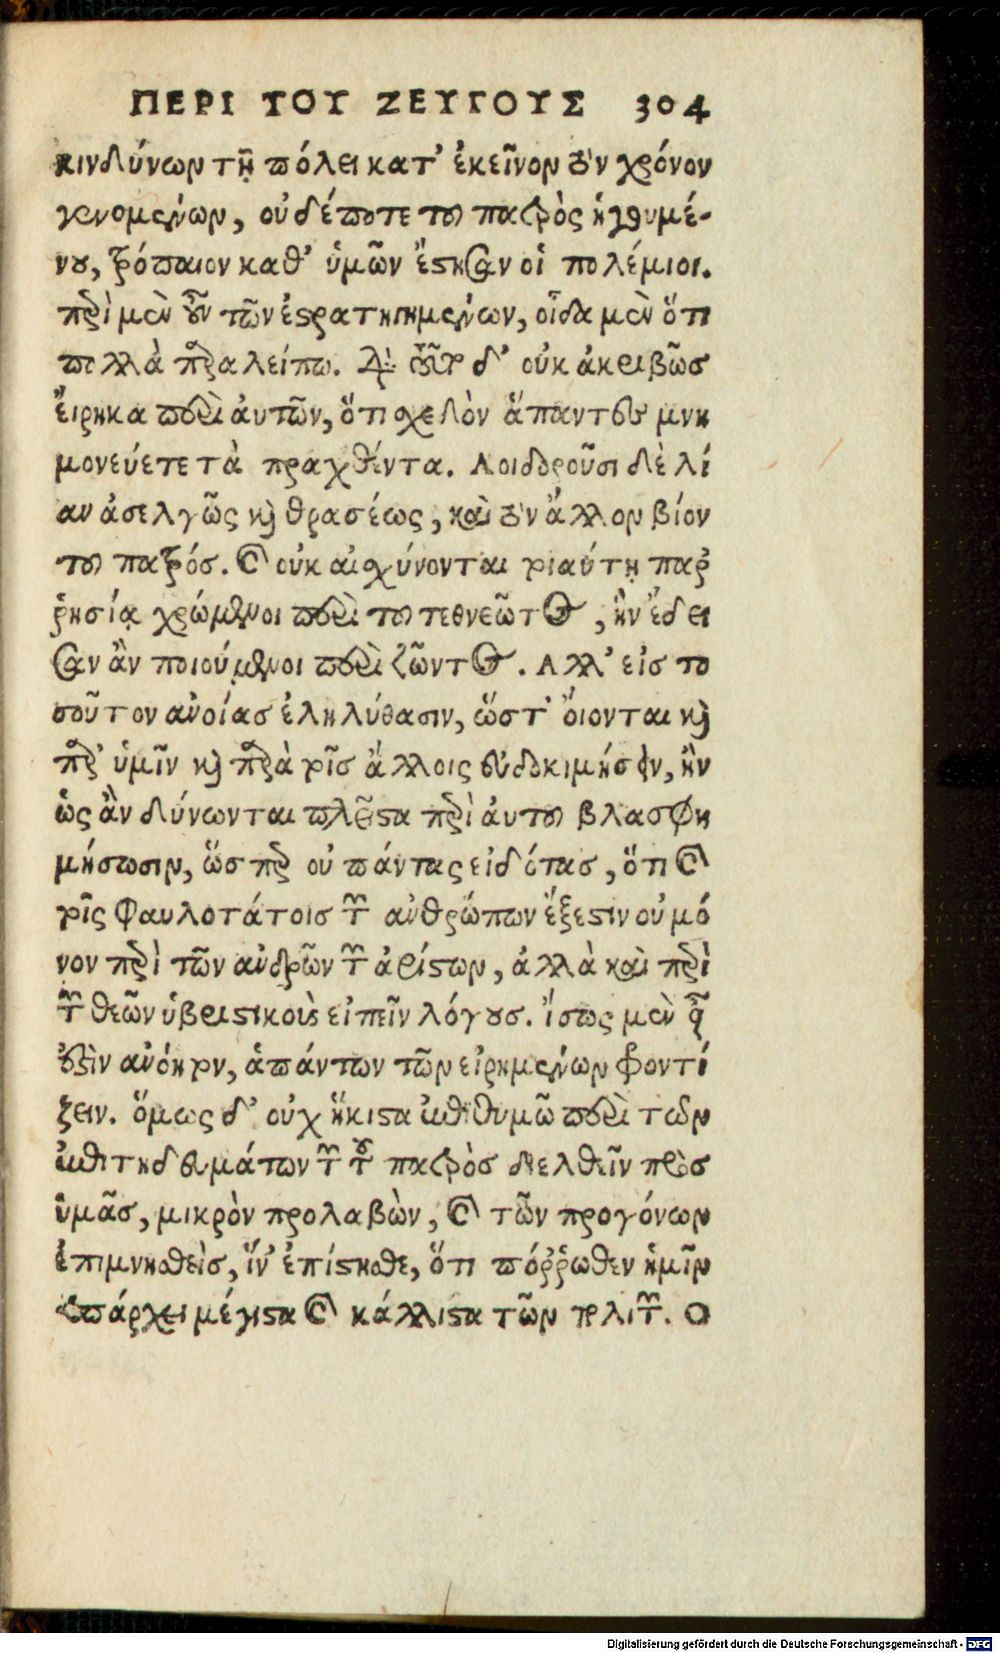 ΠΕΡΙ ΤΟΥ ΖΕΥΓΟΥΣ 304
κινδύνων τῇ πόλει κατ' ἐκεῖνον τὸν χρόνον
γενομένων, οὐδέποτε τοῦ πατρὸς ἡγουμέ-
νου, τρόπαιον καθ' ὑμῶν ἔστησαν οἱ πολέμιοι.
περὶ μὲν οὖν τῶν ἐστρατηγημένων, οἶδα μὲν ὅτι
πολλὰ παραλείπω. διὰ τοῦτο δ' οὐκ ἀκριβῶς
εἴρηκα περὶ αὐτῶν, ὅτι σχεδὸν ἅπαντες μνη
μονεύετε τὰ πραχθέντα. Λοιδοροῦσι δὲ λί
αν ἀσελγῶς καὶ θρασέως, καὶ τὸν ἄλλον βίον
τοῦ πατρός. καὶ οὐκ αἰσχύνονται τοιαύτῃ παρ
ῥησίᾳ χρώμενοι περὶ τοῦ τεθνεῶτος, ἣν ἔδει
σαν ἂν ποιούμενοι περὶ ζῶντος. Ἀλλ' εἰς το
σοῦτον ἀνοίας ἐληλύθασιν, ὥστ' οἴονται καὶ
παρ' ὑμῖν καὶ παρὰ τοῖς ἄλλοις εὐδοκιμήσειν, ἢν
ὡς ἂν δύνωνται πλεῖστα περὶ αὐτοῦ βλασφη
μήσωσιν, ὥσπερ οὐ πάντας εἰδότας, ὅτι καὶ
τοῖς φαυλοτάτοις τῶν ἀνθρώπων ἔξεστιν οὐ μό
νον περὶ τῶν ἀνδρῶν τῶν ἀρίστων, ἀλλὰ καὶ περὶ
τῶν θεῶν ὑβριστικοὺς εἰπεῖν λόγους. ἴσως μὲν οὖν
ἐστὶν ἀνόητον, ἁπάντων τῶν εἰρημένων φροντί
ζειν. ὅμως δ' οὐχ ἥκιστα ἐπιθυμῶ περὶ τῶν
ἐπιτηδευμάτων τῶν τοῦ πατρὸς διελθεῖν πρὸς
ὑμᾶς, μικρὸν προλαβὼν, καὶ τῶν προγόνων
ἐπιμνησθεὶς, ἵν' ἐπίστησθε, ὅτι πόῤῥωθεν ἡμῖν
ὑπάρχει μέγιστα καὶ κάλλιστα τῶν πολιτῶν. Ο
Digitalisierung gefördert durch die Deutsche Forschungsgemeinschaft - DFG